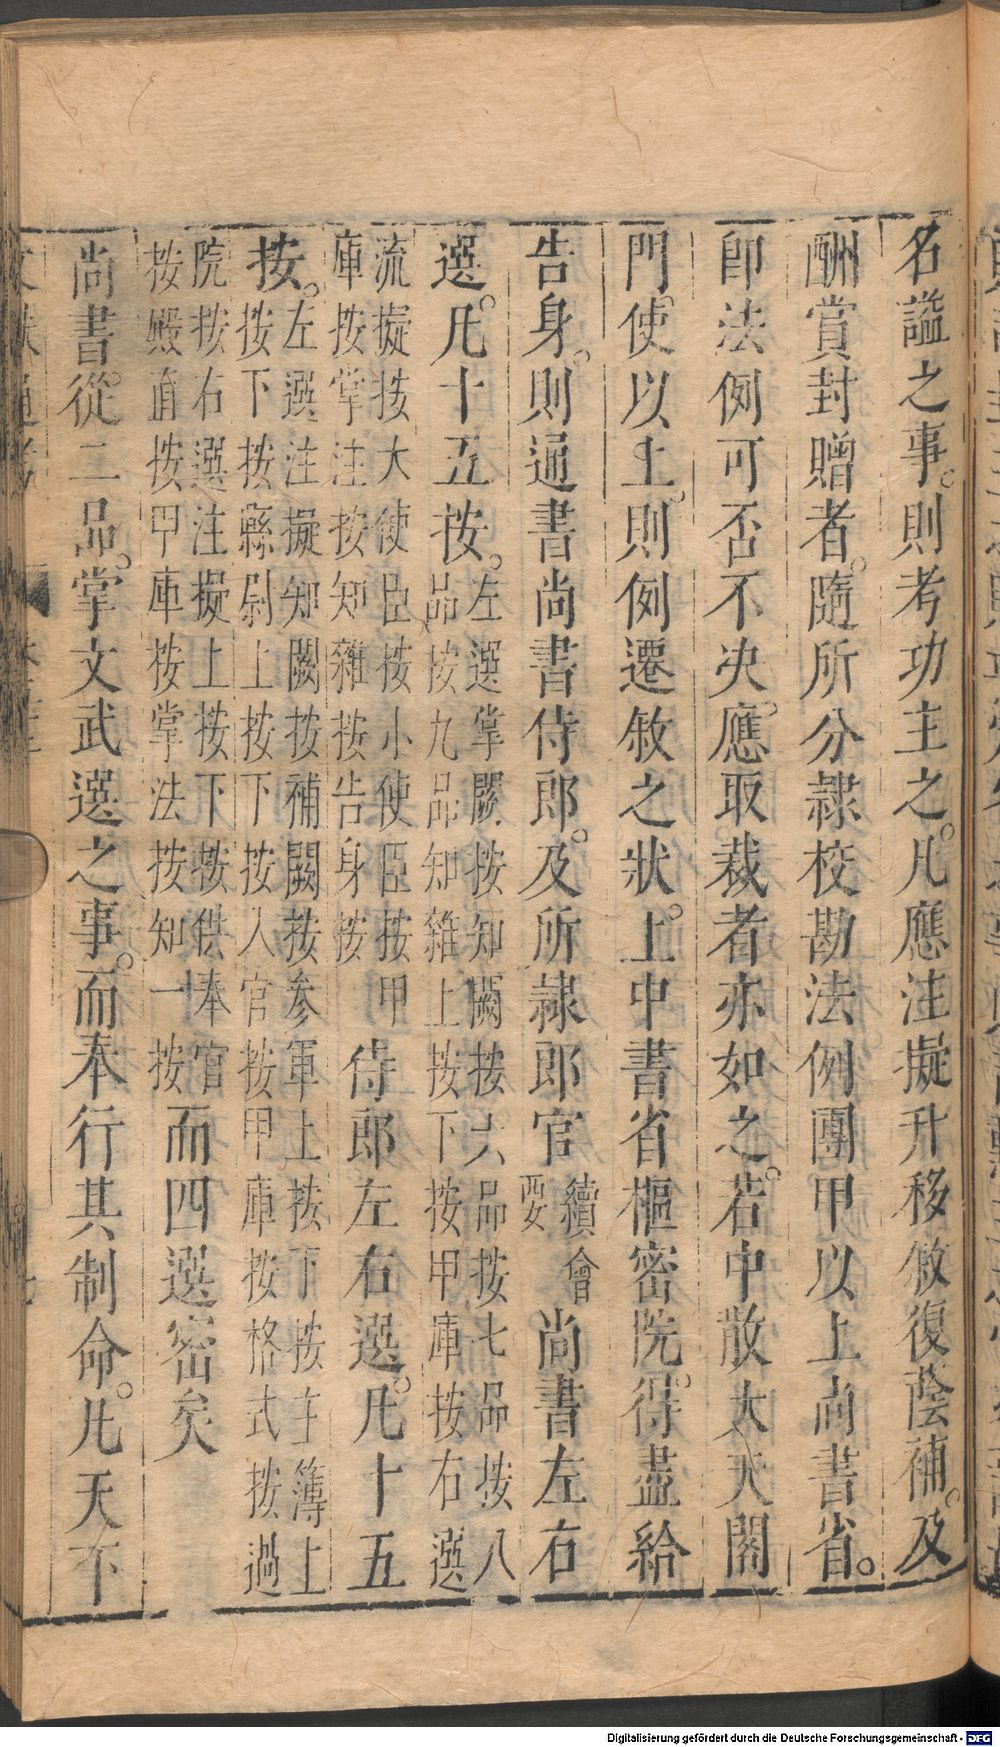 名謚之事。則考功主之。凡應注擬升移敘復蔭補。及
酬賞封贈者。隨所分隷校勘法例團甲以上尚書省。
卽法例可否不決。應取裁者亦如之。若中散大夫閤
門使以上。則例遷敘之狀。上中書省樞密院。得盡給
告身。則通書尚書侍郎。及所隷郎官續會要尚書左右
選。凡十五按。左選掌闕按知闕按六品按七品按八
品按九品知雜上按下按甲庫按右選
流擬按大使臣按小使臣按甲
庫按掌注按知雜按告身按侍郎左右選。凡十五
按。左選注擬知闕按補闕按參軍上按下按主簿上
按下按縣尉上按下按入官按甲庫按格式按過
院按右選注擬上按下按供奉官
按殿直按甲庫按掌法按知一按而四選密矣
尚書。從二品。掌文武選之事。而奉行其制命。凡天下
Digitalisierung gefördert durch die Deutsche Forschungsgemeinschaft - DFG